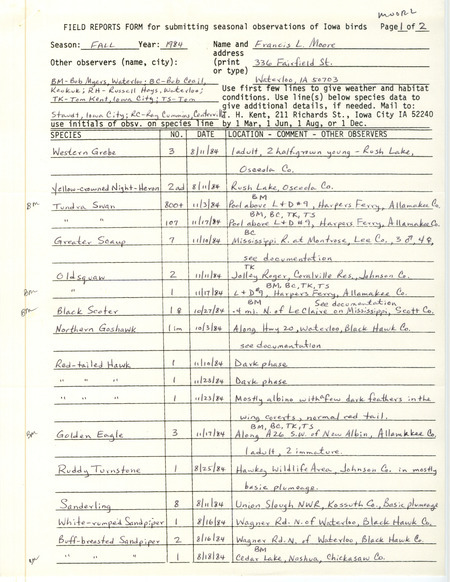 MWBRL
FIELD REPORTS FORM for submitting seasonal observations of Iowa birds Page 1 of 2
Season: FALL Year: 1984 Name and Francis L. Moore
address
Other observers (name, city): (print 336 Fairfield St.
or type)
BM-Bob Myers, Waterloo; BC-Bob Cecil, Waterloo, IA 50703
Keokuk; RH-Russell Hays, Waterloo; Use first few lines to give weather and habitat
TK-Tom Kent, Iowa City; TS-Tom conditions. Use line(s) below species data to
give additional details, if needed. Mail to:
Stewart, Iowa City; RC-Ray Cummins, Centerville T. H. Kent, 211 Richards St., Iowa City IA 52240
use initials of obsv. on species line by 1 Mar, 1 Jun, 1 Aug, or 1 Dec.
SPECIES NO. DATE LOCATION - COMMENT - OTHER OBSERVERS
Western Grebe 3 8/11/84 1 adult, 2 half grown young - Rush Lake,
Osceola Co.
Yellow-crowned Night-Heron 2nd 8/11/84 Rush Lake, Osceola Co.
BM
BM Tundra Swan 800+ 11/3/84 Pool above L+D #9, Harpers Ferry, Allamakee Co.
BM, BC, TK, TS
" " 107 11/17/84 Pool above L+D #9, Harpers Ferry, Allamakee Co.
BC
Greater Scaup 7 11/10/84 Mississippi R. at Montrose, Lee Co., 3 ♂, 4 ♀,
see documentation
TK
Oldsquaw 2 11/11/84 Jolley Roger, Coralville Res., Johnson Co.
BM, BC, TK, TS
BM " 1 11/17/84 L+D #9, Harpers Ferry, Allamakee Co.
BM See documentation
BM Black Scoter 18 10/27/84 .4 mi. N. of Le Claire on Mississippi, Scott Co.
Northern Goshawk 1 im 10/3/84 Along Hwy 20, Waterloo, Black Hawk Co.
see documentation
Red-tailed Hawk 1 11/10/84 Dark phase
" " " 1 11/23/84 Dark phase
" " " 1 11/23/84 Mostly albino with a few dark feathers in the
wing coverts, normal red tail.
BM, BC, TK, TS
BM Golden Eagle 3 11/17/84 Along A26 S.W. of New Albin, Allamakee Co.
1 adult, 2 immature.
Ruddy Turnstone 1 8/25/84 Hawkeye Wildlife Area, Johnson Co. in mostly
basic plumeage.
Sanderling 8 8/11/84 Union Slough NWR, Kossuth Co., Basic plumeage
White-rumped Sandpiper 1 8/16/84 Wagner Rd. N. of Waterloo, Black Hawk Co.
Buff-breasted Sandpiper 2 8/16/84 Wagner Rd. N. of Waterloo, Black Hawk Co.
BM
BM " " 1 8/18/84 Cedar Lake, Nashua, Chickasaw Co.